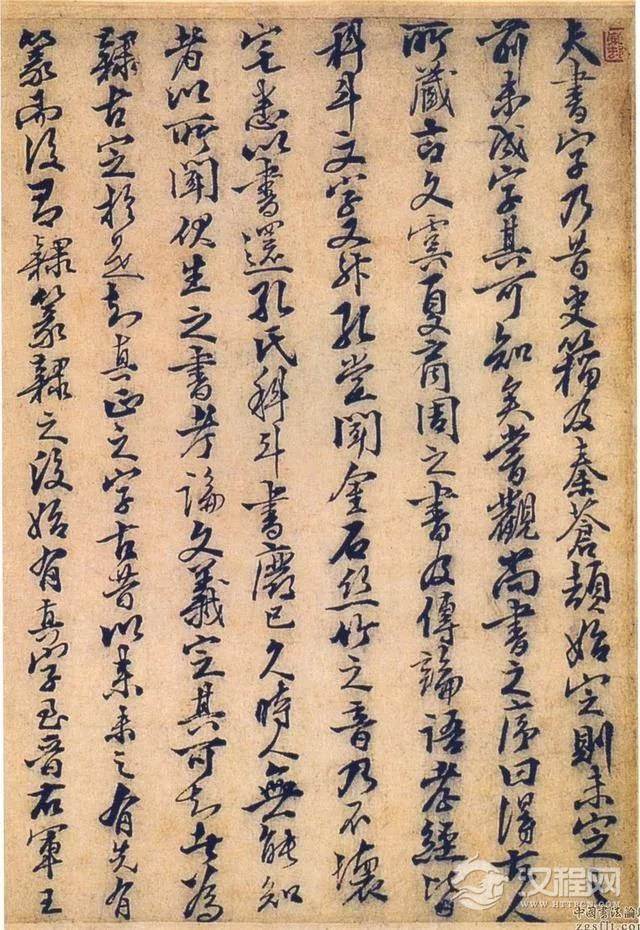 夫書字乃昔史籀及秦蒼頡始定則未定之
前未成字其可知矣嘗觀尚書之序曰得古人
所藏古文虞夏商周之書及傳論語孝經皆
科斗文字又升孔堂聞金石絲竹之音乃不壞
宅悉以書還孔氏科斗書廢已久時人無能知
者以所聞伏生之書考論文義定其可知者為
隸古定於是知真正之字古昔以來未之有先有
篆而後即隸篆隸之後始有真字至晉右軍王
汉程网
HTTPCN.COM
中國書法論